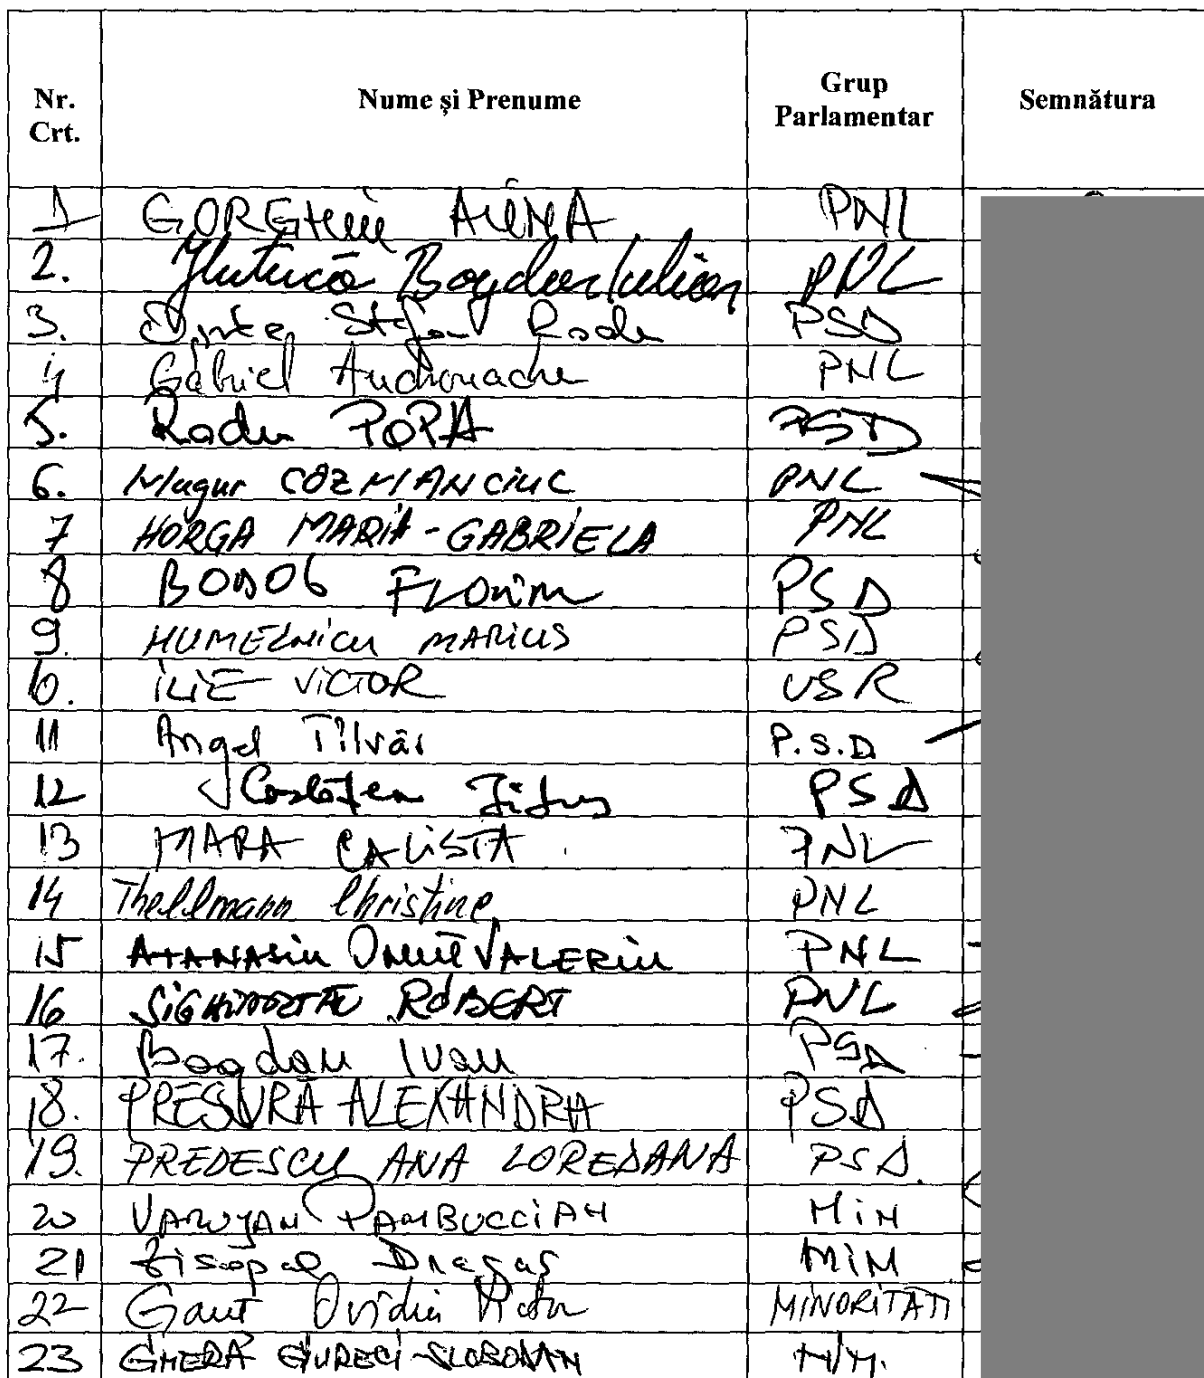 Nr. Crt. Nume și Prenume Grup Parlamentar Semnătura
1 GORGHIU ALINA PNL
2. Huțucă Bogdan Iulian PNL
3. Oprea Ștefan Radu PSD
4 Gabriel Andronache PNL
5. Radu POPA PSD
6. Mugur COZMANCIUC PNL
7 HORGA MARIA-GABRIELA PNL
8 Florin PSD
9. HUMELNICU MARIUS PSD
10. ILIE VICTOR USR
11 Angel Tîlvăr P.S.D
12 PSD
13 MARA CALISTA PNL
14 Thellmann Christine PNL
15 ATANASIU VALERIU PNL
16 SIGHIARTĂU ROBERT PNL
17. Bogdan Ivan PSD
18. PRESURĂ ALEXANDRA PSD
19. PREDESCU ANA LOREDANA PSD.
20 VARUJAN PAMBUCCIAN MIN
21 Zisopol Dragoș MIN
22 Ganț Ovidiu Victor MINORITATI
23 GHERA GIURECI-SLOBODAN MIN.